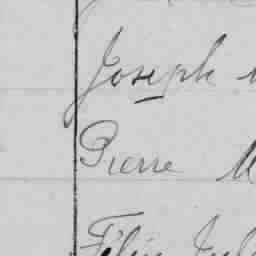 Joseph
Pierre M
Félix Jul